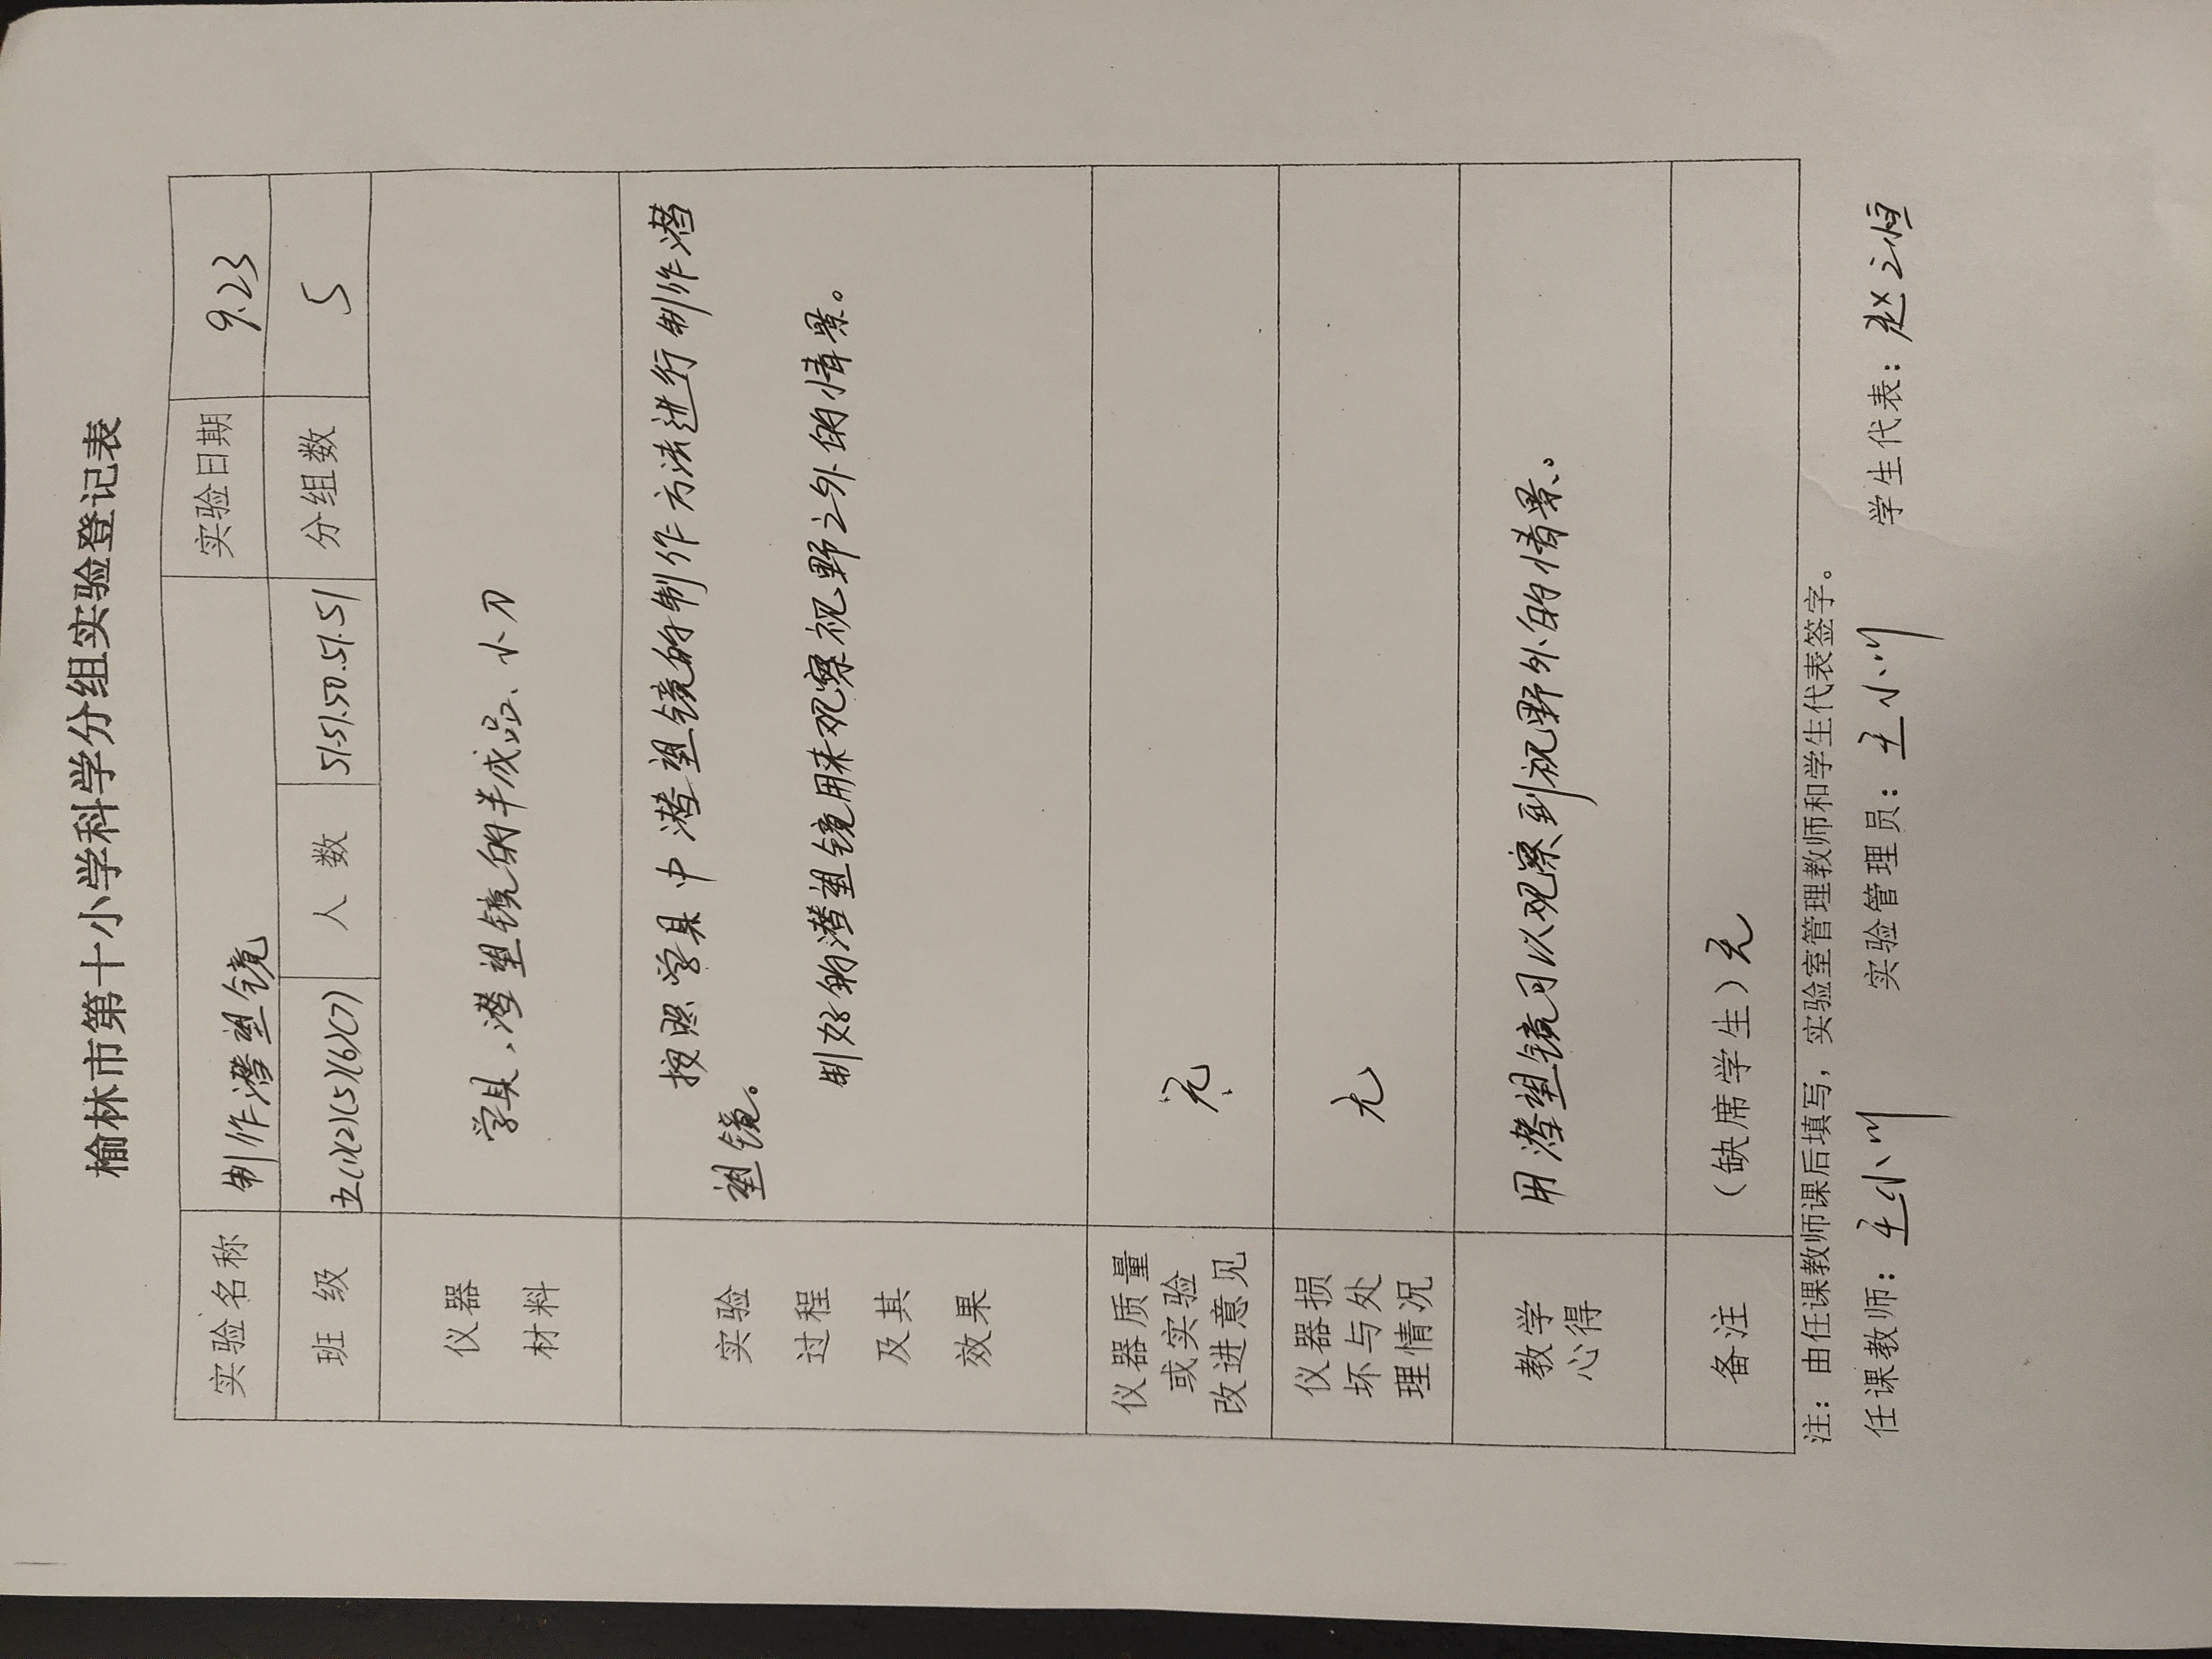 榆林市第十小学科学分组实验登记表
实验名称 制作潜望镜 实验日期 9.23
班 级 五(1)(2)(5)(6)(7) 人 数 51.51.50.51.51 分组数 5
仪器
材料
学具、潜望镜的半成品、小刀
实验
过程
及其
效果
按照学具中潜望镜的制作方法进行制作潜
望镜。
制好的潜望镜用来观察视野之外的情景。
仪器质量
或实验
改进意见
无
仪器损
坏与处
理情况
无
教学
心得
用潜望镜可以观察到视野外的情景。
备注 （缺席学生）无
注：由任课教师课后填写，实验室管理教师和学生代表签字。
任课教师：王小川 实验管理员：王小川 学生代表：赵之恒